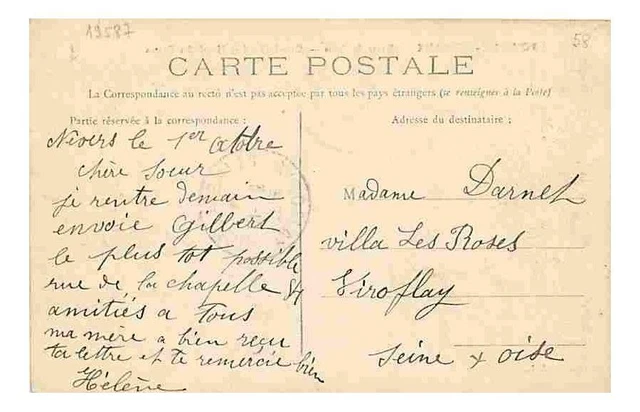 19587
58
CARTE POSTALE
La Correspondance au recto n'est pas acceptée par tous les pays étrangers (se renseigner à la Poste)
Partie réservée à la correspondance :
Nevers le 1er octobre
chère Soeur
je rentre demain
envoie Gilbert
le plus tot possible
rue de la chapelle 84
amitiés a Tous
ma mère a bien reçu
ta lettre et te remercie bien
Hélène
Adresse du destinataire :
Madame Darnet
villa Les Roses
Viroflay
Seine & oise